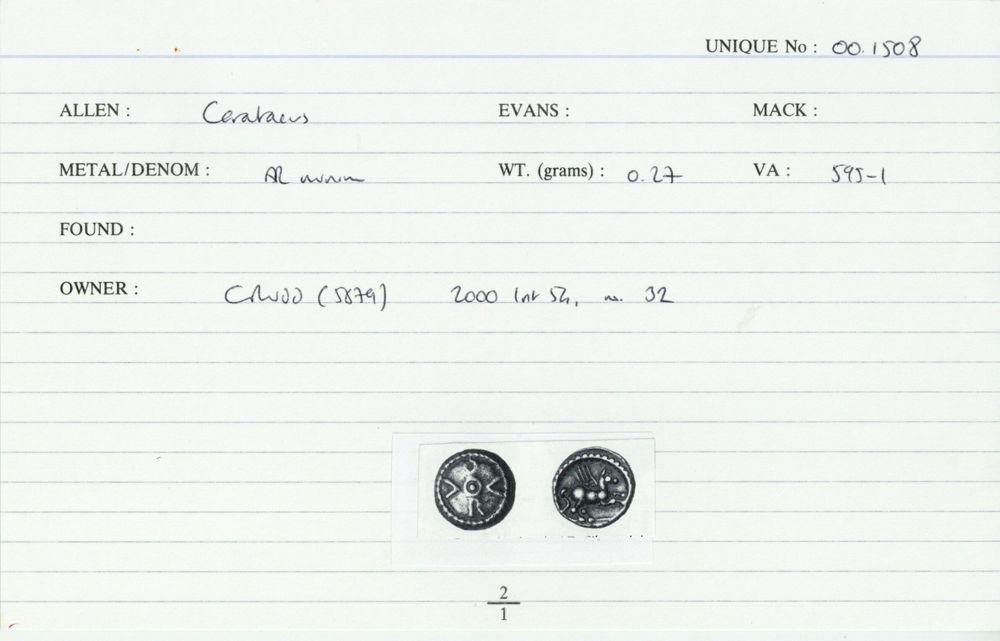 UNIQUE No : 00.1508
ALLEN : Caratacus EVANS : MACK :
METAL/DENOM : AR minim WT. (grams) : 0.27 VA : 595-1
FOUND :
OWNER : (5879) 2000 no. 32
2
1